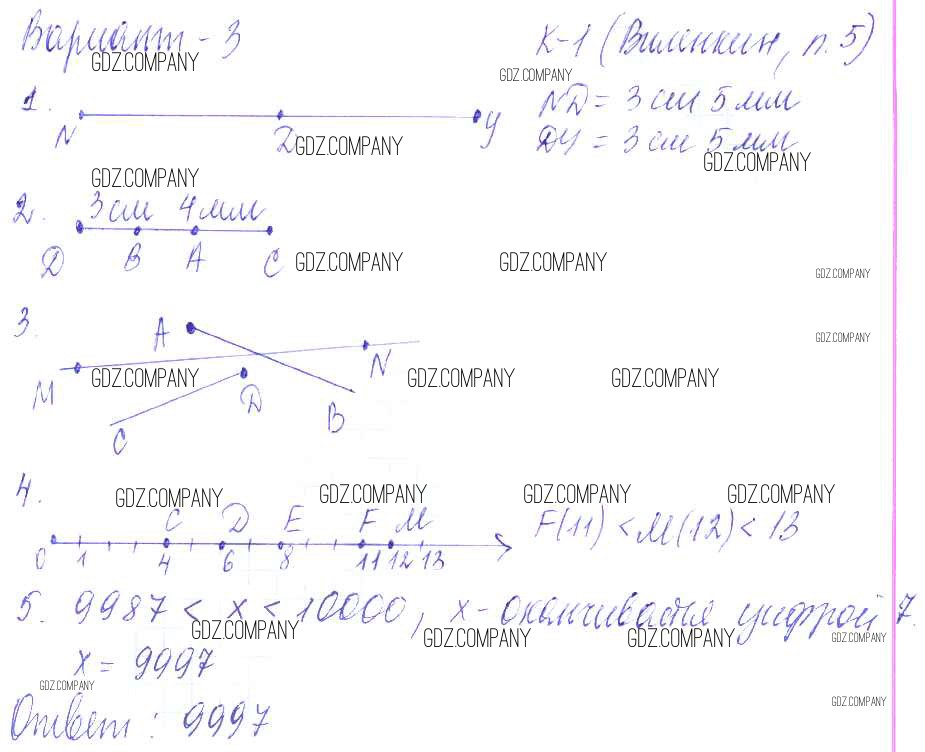 Вариант - 3
К-1 (Виленкин, п. 5)
GDZ.COMPANY
GDZ.COMPANY
1.
N D У
ND = 3 см 5 мм
DУ = 3 см 5 мм
GDZ.COMPANY
GDZ.COMPANY
GDZ.COMPANY
2. 3 см 4 мм
D B A C
GDZ.COMPANY
GDZ.COMPANY
GDZ.COMPANY
3.
A
N
M
D
B
C
GDZ.COMPANY
GDZ.COMPANY
GDZ.COMPANY
GDZ.COMPANY
4.
GDZ.COMPANY
GDZ.COMPANY
GDZ.COMPANY
GDZ.COMPANY
C D E F M
0 1 4 6 8 11 12 13
F(11) < M(12) < 13
5. 9987 < x < 10000, x - оканчивается цифрой 7.
GDZ.COMPANY
GDZ.COMPANY
GDZ.COMPANY
GDZ.COMPANY
x = 9997
GDZ.COMPANY
GDZ.COMPANY
Ответ: 9997